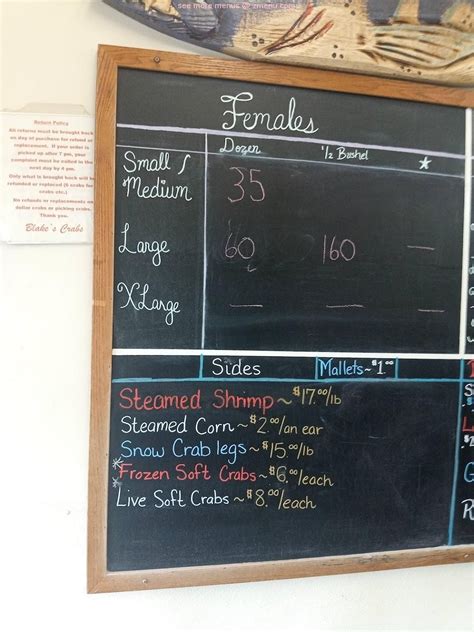 see more menus @ zmenu.com
Females
Dozen 1/2 Bushel ★
Small / Medium 35
Large 60 160 —
XLarge — — —
Sides Mallets ~ $1.00
Steamed Shrimp ~ $17.00/lb
Steamed Corn ~ $2.00/an ear
Snow Crab legs ~ $15.00/lb
Frozen Soft Crabs ~ $6.00/each
Live Soft Crabs ~ $8.00/each
Return Policy
All refunds must be brought back
on day of purchase for refund or
replacement. If your order is
picked up after 7 pm, your
complaint must be called in the
next day by 4 pm.
Only what is brought back will be
refunded or replaced (6 crabs for
6 crabs etc.)
No refunds or replacements on
Thank you.
Blake's Crabs